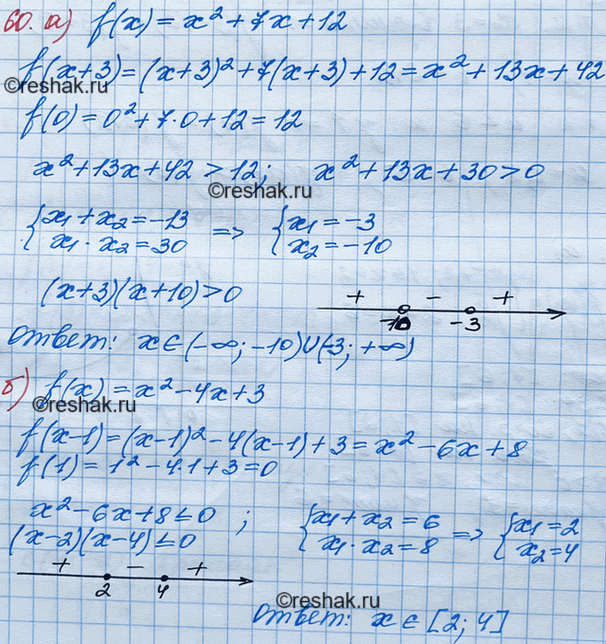 60. а) f(x) = x² + 7x + 12
f(x+3) = (x+3)² + 7(x+3) + 12 = x² + 13x + 42
©reshak.ru
f(0) = 0² + 7·0 + 12 = 12
x² + 13x + 42 > 12; x² + 13x + 30 > 0
©reshak.ru
{x₁ + x₂ = -13 => {x₁ = -3
x₁ · x₂ = 30 x₂ = -10
(x+3)(x+10) > 0
+ - +
-10 -3
Ответ: x ∈ (-∞; -10) ∪ (-3; +∞)
б) f(x) = x² - 4x + 3
©reshak.ru
f(x-1) = (x-1)² - 4(x-1) + 3 = x² - 6x + 8
f(1) = 1² - 4·1 + 3 = 0
x² - 6x + 8 ≤ 0 ; {x₁ + x₂ = 6 => {x₁ = 2
(x-2)(x-4) ≤ 0 x₁ · x₂ = 8 x₂ = 4
+ - +
2 4
©reshak.ru
Ответ: x ∈ [2; 4]